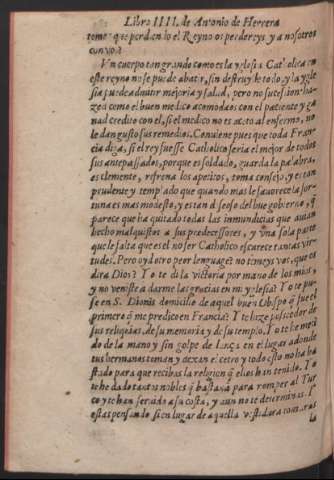 Libro IIII. de Antonio de Herrera
teme que perdiendo el Reyno os perdereys y a nosotros
con vos?
Vn cuerpo tan grande como es la yglesia Catolica en
este reyno no se puede abatir, sin destruyr le todo, y la ygle
sia puede admitir mejoria y salud, pero no succession ha-
zed como el buen medico acomodaos con el paciente y ga
nad credito con el, si el medico no es aceto al enfermo, no
le dan gusto sus remedios. Conuiene pues que toda Fran-
cia diga, si el rey fuesse Catholico seria el mejor de todos
sus antepassados, porque es soldado, guarda la palabra,
es clemente, refrena los apetitos, toma consejo, y es tan
prudente y templado que quando mas le fauorece la for-
tuna es mas modesto, y es tan desseoso del buen gobierno, q̃
parece que ha quitado todas las inmundicias que auian
hecho malquistos a sus predecessores, y vna sola parte
que le falta que es el no ser Catholico escarece tantas vir-
tudes. Pero oyd otro peor lenguage: no temeys vos, que os
dira Dios? Yo te di la victoria por mano de los mios,
y no veniste a darme las gracias en mi yglesia? Yo te pu-
se en S. Dionis domicilio de aquel buen Obispo q̃ fue el
primero q̃ me predico en Francia? Y te hize posseedor de
sus reliquias, de su memoria y de su templo. Yo te he meti
do de la mano y sin golpe de lança en el lugar adonde
tus hermanos toman y dexan el cetro y todo esto no ha ba
stado para que recibas la religion q̃ ellos han tenido. Yo
te he dado tantos nobles q̃ bastara para romper al Tur
co y te han seruido a su costa, y aun no te determinas.
estas pensando si en lugar de aquella vestidura tomaras
la